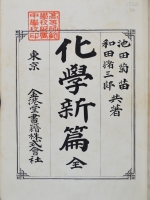 池田菊苗
和田猪三郎 共著
化學新篇 全
東京 金港堂書籍株式會社